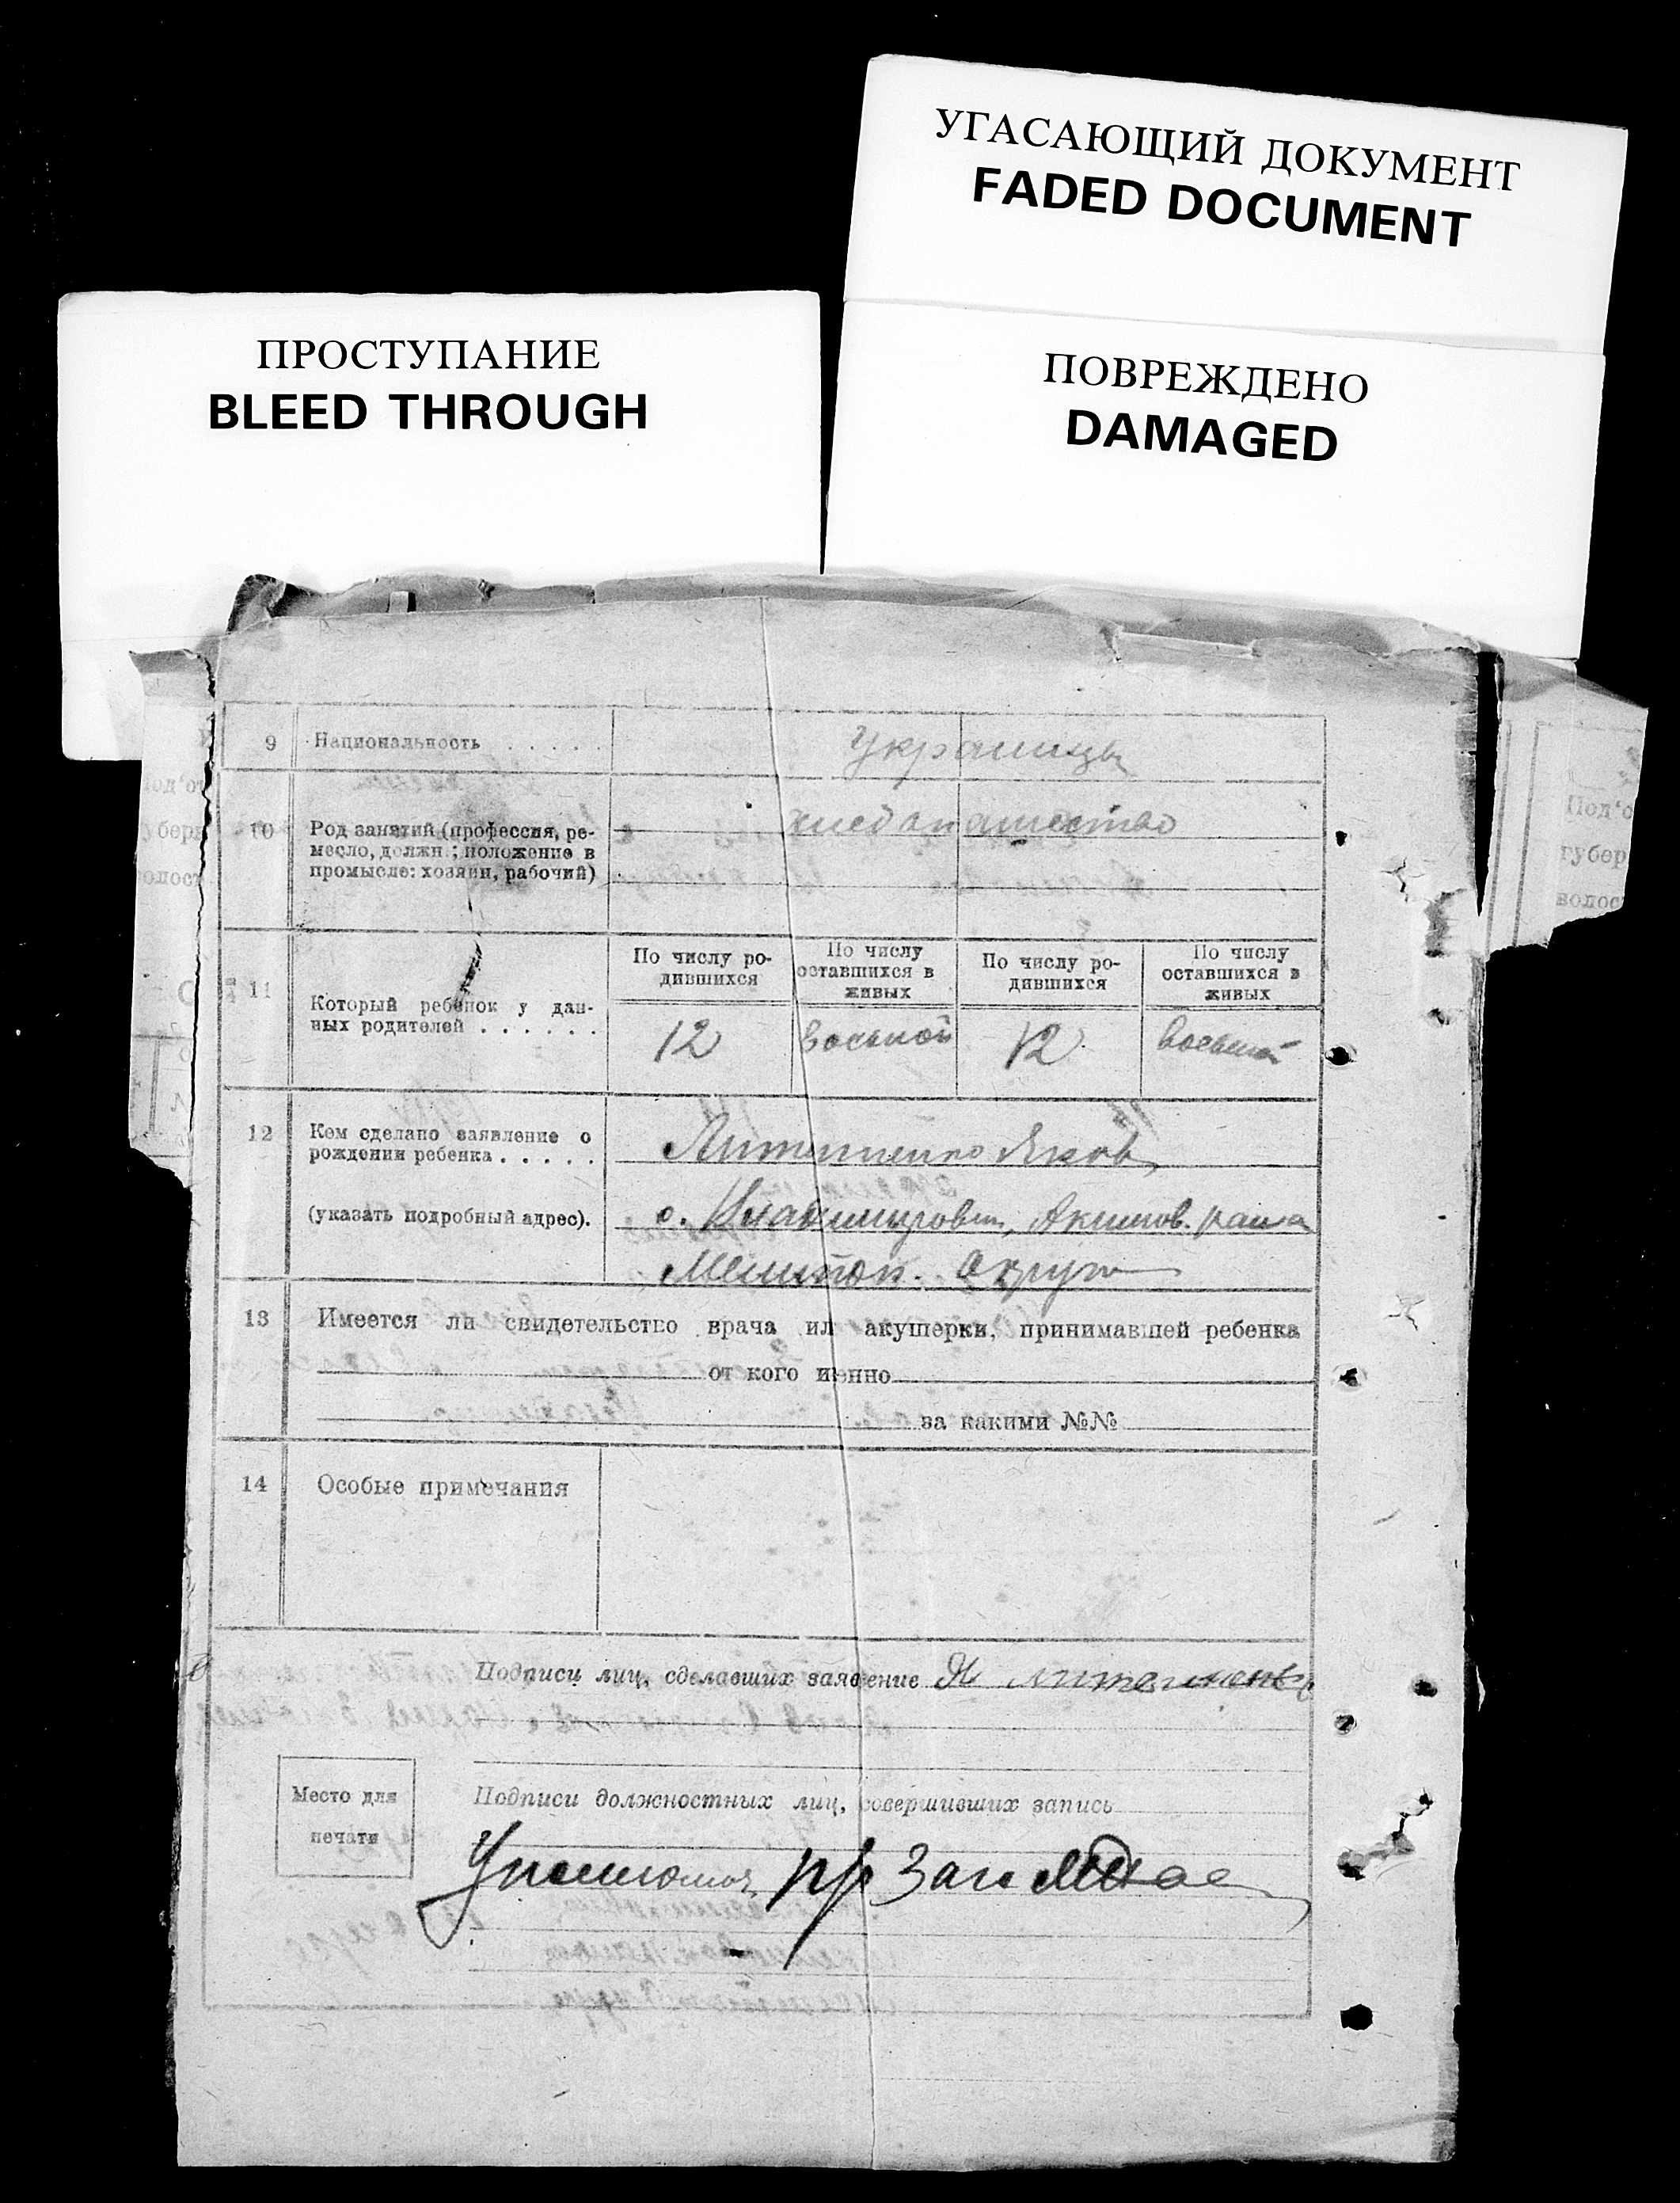 УГАСАЮЩИЙ ДОКУМЕНТ
FADED DOCUMENT
ПРОСТУПАНИЕ
BLEED THROUGH
ПОВРЕЖДЕНО
DAMAGED
9 Национальность . . . . . Украинцы
10 Род занятий (профессия, ре-
месло, должн.; положение в
промысле: хозяин, рабочий)
хлебопашество
11 Который ребенок у дан-
ных родителей . . . . . .
По числу ро-
дившихся
По числу
оставшихся в
живых
По числу ро-
дившихся
По числу
оставшихся в
живых
12 восьмой 12 восьмой
12 Кем сделано заявление о
рождении ребенка . . . . .
Яков
(указать подробный адрес). с. Акимов. района
Мелитоп. Округа
13 Имеется ли свидетельство врача ил акушерки, принимавшей ребенка
от кого и енно
за какими №№
14 Особые примечания
Подписи лиц, сделавших заявение
Место для
печати
Подписи должностных лиц, совершивших запись
Под'о
губер
волос